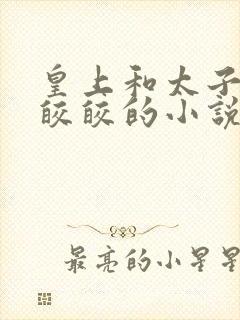 皇上和太子
皎皎的小說
最亮的小星星